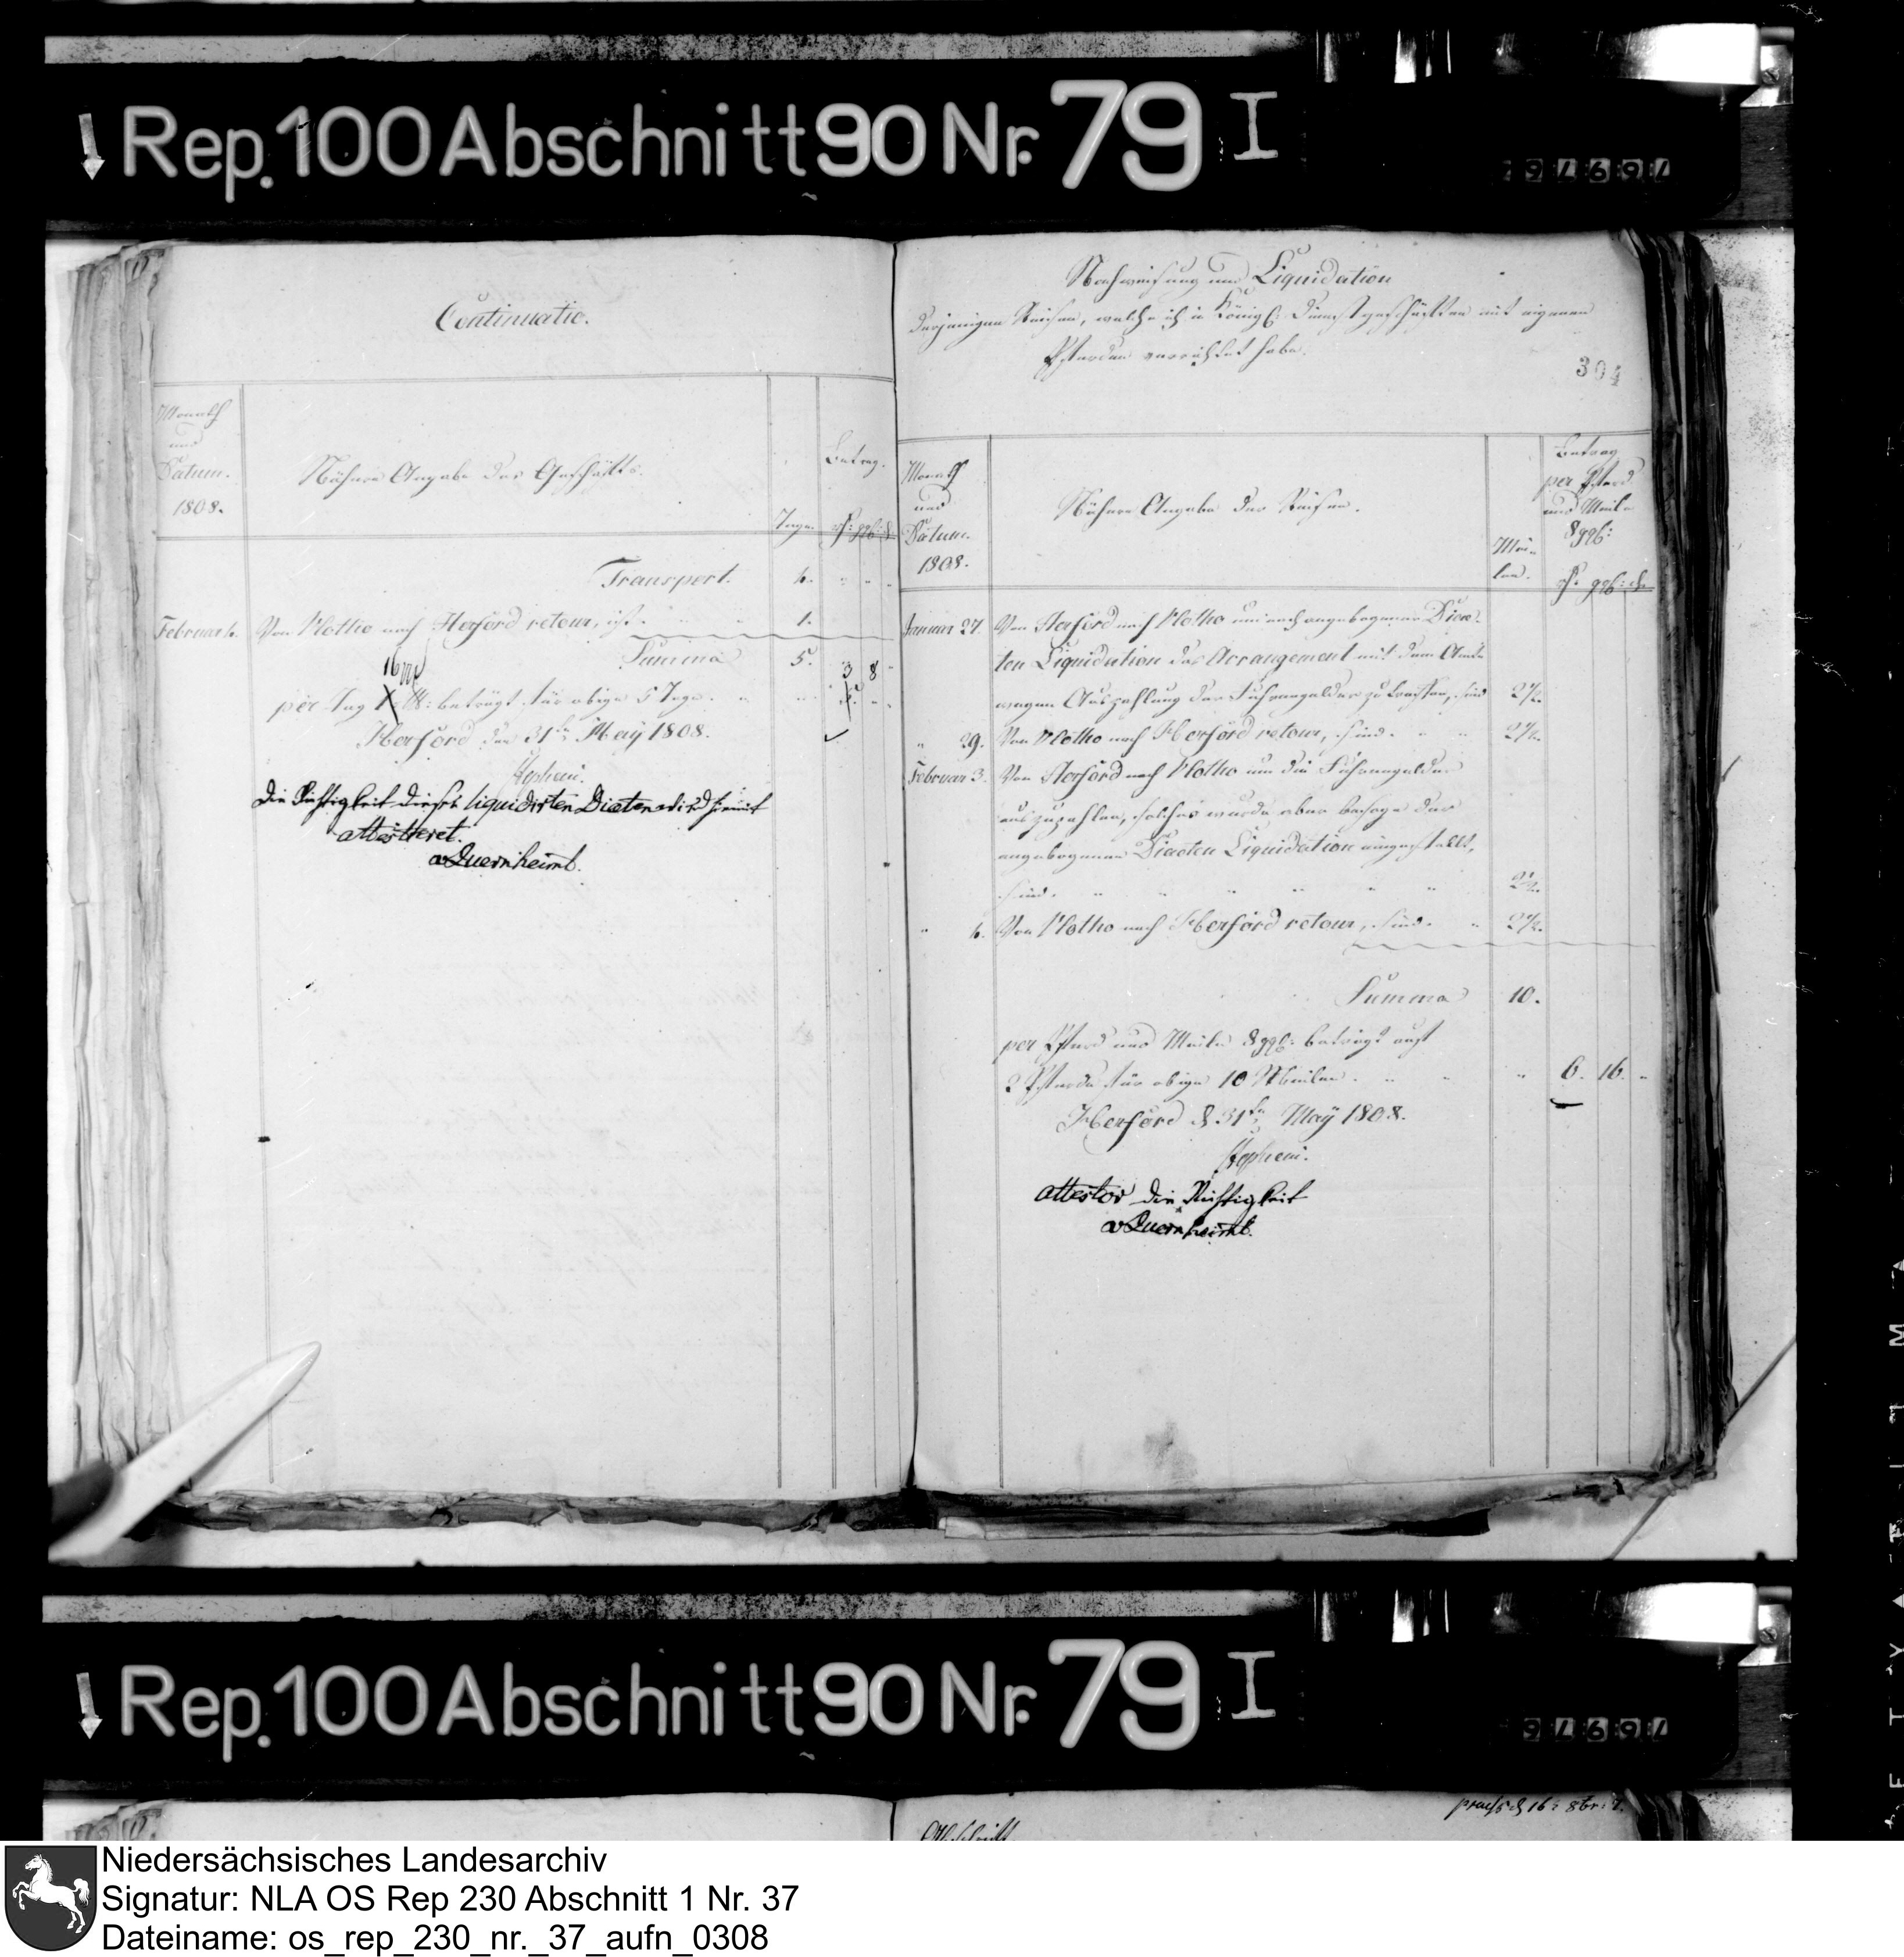 Rep. 100 Abschnitt 90 Nr. 79 I
Continuatio.
Monath
und
Datum.
1808.
Nähere Angabe des Geschäfts.
Tage.
Betrag.
rth: ggl: d
Transport. 4. " " "
Februar 4. Von Vlotho nach Herford retour, ist. " " 1.
Summa 5. 3 8 "
16 ggl
per Tag 1 rth: beträgt für obige 5 Tage. " " 5. " "
Herford den 31ten May 1808.
Stepheni.
Die Richtigkeit dieser liquidirten Diaeten wird hiemit
attestieret.
v Quernheimb.
Nachweisung und Liquidation
derjenigen Reisen, welche ich in Königl: Dienstgeschäften mit eigenen
Pferden verrichtet habe.
304
Monath
und
Datum.
1808.
Nähere Angabe der Reisen.
Mei-
len.
Betrag
per Pferd
und Meile
8 ggl:
rth. ggl: d.
Januar 27. Von Herford nach Vlotho um nach angebogener Diae-
ten Liquidation das Arrangement mit dem Amte
wegen Auszahlung der Fuhrengelder zu treffen, sind 2½.
" 29. Von Vlotho nach Herford retour, sind. " " 2½.
Februar 3. Von Herford nach Vlotho um die Fuhrengelder
auszuzahlen, solches wurde aber besage der
angebogenen Diaeten Liquidation eingestellt,
sind. " " " " " " 2½.
" 4. Von Vlotho nach Herford retour, sind. " 2½.
Summa 10.
per Pferd und Meile 8 ggl: beträgt auf
2 Pferde für obige 10 Meilen. " " " 6. 16. "
Herford d 31ten May 1808.
Stepheni.
attestor die Richtigkeit
v Quernheimb.
Rep. 100 Abschnitt 90 Nr. 79 I
praes d 16t 8br:
Abschrift
Niedersächsisches Landesarchiv
Signatur: NLA OS Rep 230 Abschnitt 1 Nr. 37
Dateiname: os_rep_230_nr._37_aufn_0308